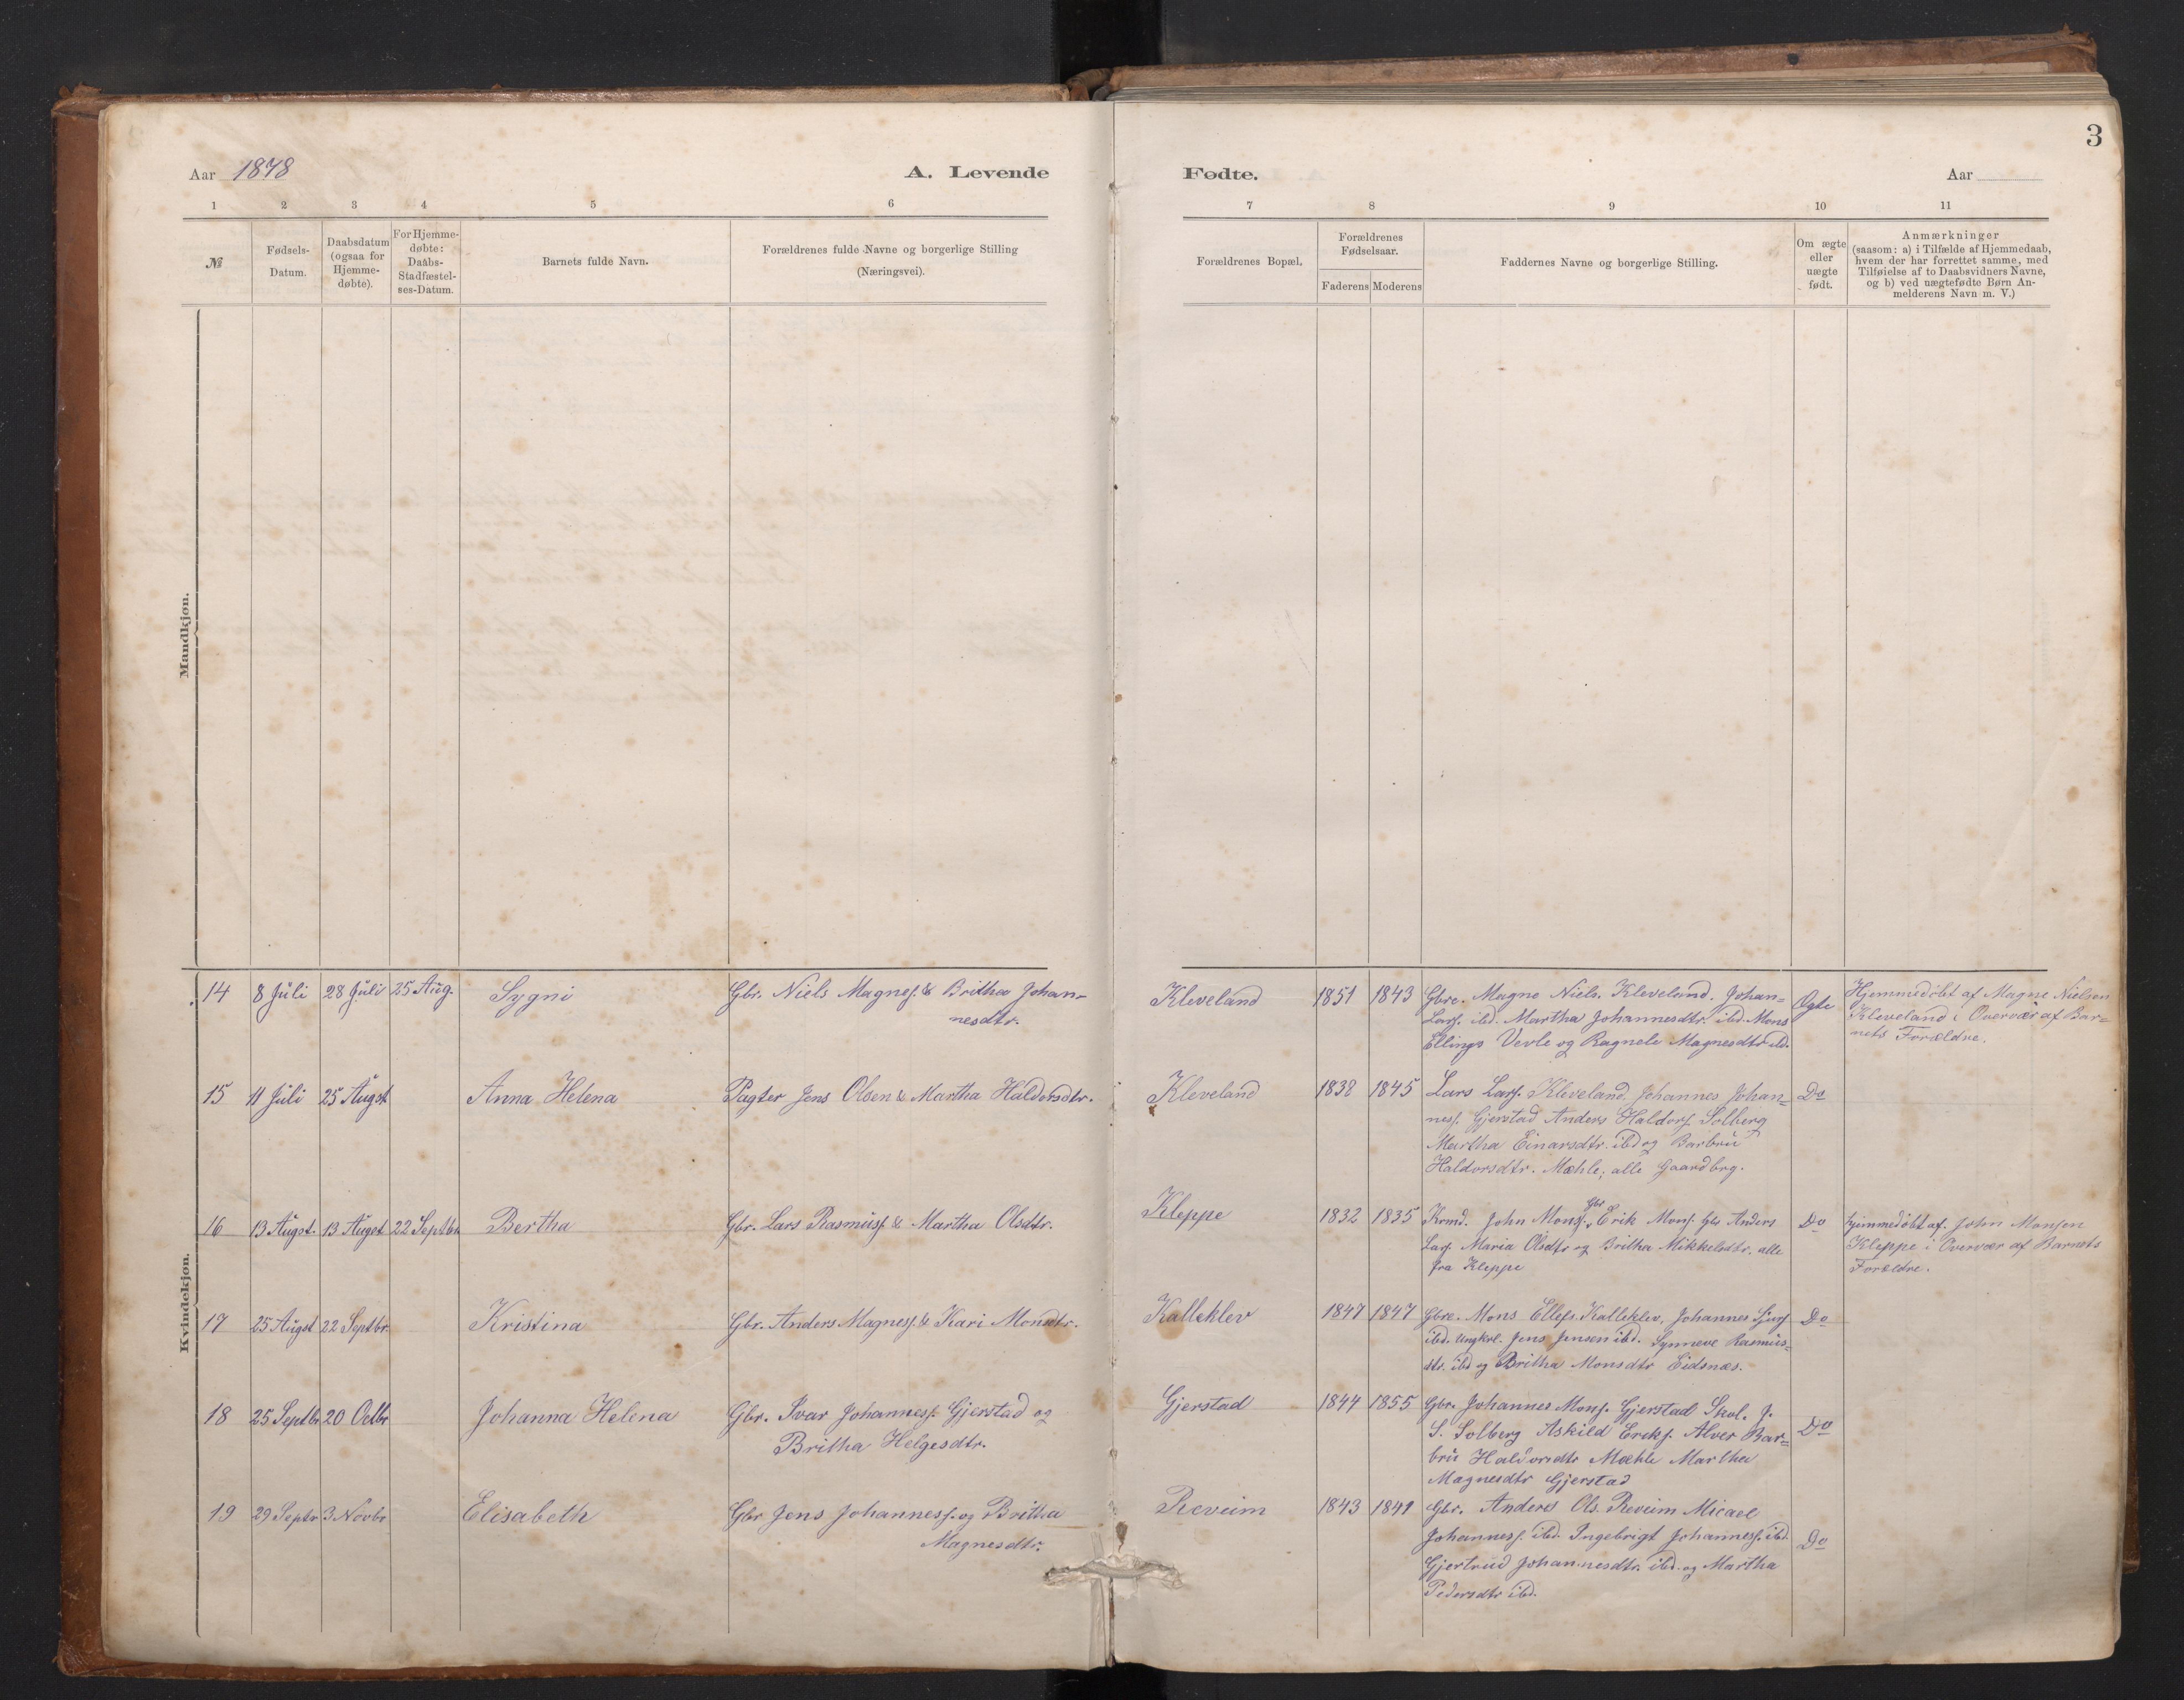 3
Aar 1878
A. Levende
Fødte.
Aar
1 2 3 4 5 6
7 8 9 10 11
№
Fødsels-
Datum.
Daabsdatum
(ogsaa for
Hjemme-
døbte).
For Hjemme-
døbte:
Daabs-
Stadfæstel-
ses-Datum.
Barnets fulde Navn.
Forældrenes fulde Navne og borgerlige Stilling
(Næringsvei).
Forældrenes Bopæl.
Forældrenes
Fødselsaar.
Faderens Moderens
Faddernes Navne og borgerlige Stilling.
Om ægte
eller
uægte
født.
Anmærkninger
(saasom: a) i Tilfælde af Hjemmedaab,
hvem der har forrettet samme, med
Tilføielse af to Daabsvidners Navne,
og b) ved uægtefødte Børn An-
melderens Navn m. V.)
Mandkjøn.
Kvindekjøn.
14 8 Juli 28 Juli 25 Aug. Sygni
Gbr. Niels Magnes. & Britha Johan-
nesdtr.
Kleveland 1851 1843
Gbre. Magne Niels. Kleveland. Johan=
Lars. ibd. Martha Johannesdtr. ibd. Mons
Ellings Vevle og Ragnele Magnesdtr ibd.
Ægte
Hjemmedøbt af Magne Nielsen
Kleveland i Overvær af Bar=
nets Forældre.
15 11 Juli 25 Augst Anna Helena
Pagter Jens Olsen & Martha Haldorsdtr.
Kleveland 1838 1845
Lars Lars. Kleveland, Johannes Johan=
nes. Gjerstad Anders Haldors. Solberg
Martha Einarsdtr. ibd og Barbru
Haldorsdtr. Mæhle, alle Gaardbrg.
Do
16 13 Augst. 13 Augst 22 Septbr Bertha
Gbr. Lars Rasmus. & Martha Olsdtr.
Kleppe 1832 1835
Kmd. John Mons. Gbr Erik Mons. Gbr Anders
Lars. Maria Olsdtr og Britha Mikkelsdtr. alle
fra Kleppe
Do
Hjemmedøbt af. John Monsen
Kleppe i Overvær af Barnets
Forældre.
17 25 Augst 22 Septbr. Kristina
Gbr. Anders Magnes. & Kari Monsdtr.
Kalleklev 1847 1847
Gbre. Mons Ellefs. Kalleklev, Johannes Sjurs
ibd. Ungkrl. Jens Jensen ibd. Synneve Rasmus=
dtr. ibd og Britha Monsdtr Eidsnæs.
Do
18 25 Septbr 20 Octbr Johanna Helena
Gbr. Ivar Johannes. Gjerstad og
Britha Helgesdtr.
Gjerstad 1844 1855
Gbr. Johannes Mons. Gjerstad Skol. J.
S. Solberg Askild Eriks. Alver Bar=
bru Haldorsdtr Mæhle Martha
Magnesdtr Gjerstad
Do
19 29 Septr 3 Novbr Elisabeth
Gbr Jens Johannes. og Britha
Magnesdtr.
Reveim 1843 1841
Gbr. Anders Ols. Reveim Micael
Johannes. ibd. Ingebrigt Johannes. ibd.
Gjertrud Johannesdtr. ibd. og Martha
Pedersdtr ibd.
Do